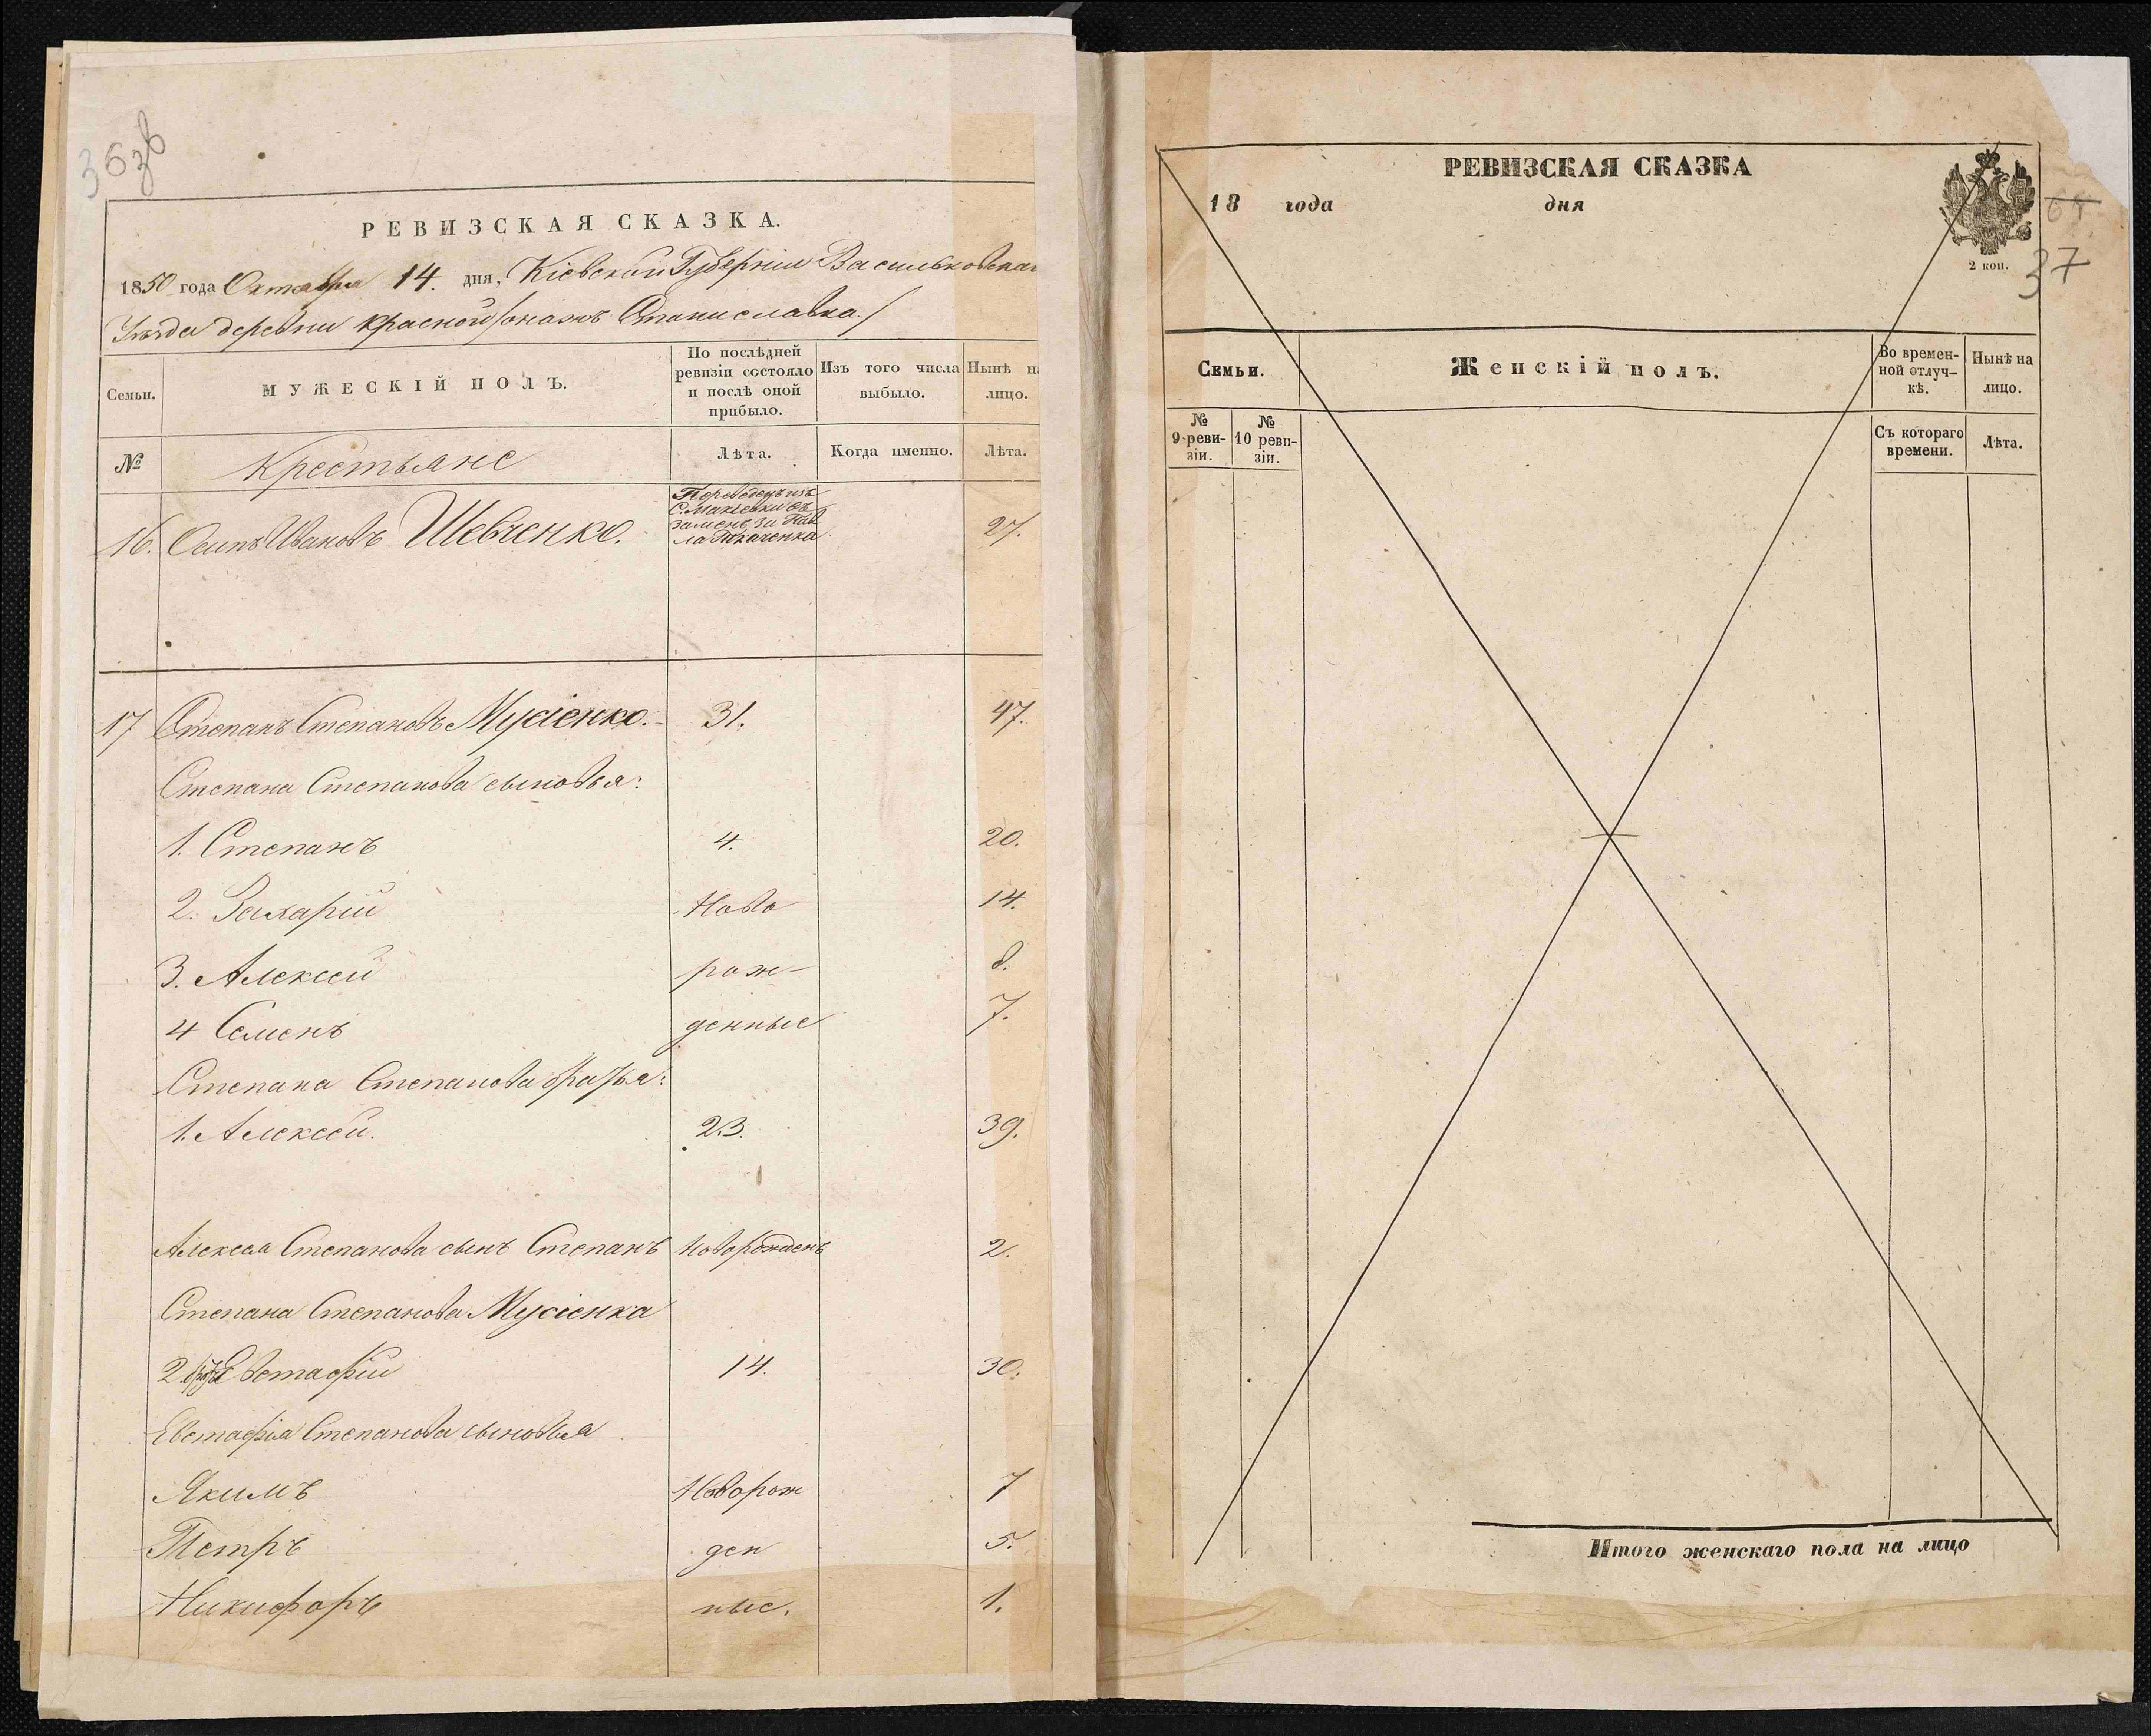 363б
РЕВИЗСКАЯ СКАЗКА.
1850 года Октября 14. дня, Кіевской Губерніи Васильковскаго
Уѣзда деревни Красной /онажъ Станиславка./
Семьи.
МУЖЕСКІЙ ПОЛЪ.
По послѣдней
ревизіи состояло
и послѣ оной
прибыло.
Изъ того числа
выбыло.
Нынѣ на
лицо.
№
Крестьяне
Лѣта.
Когда именно.
Лѣта.
Переведенъ изъ
С. Макіевки въ
замѣнъ за Пав
ла Ткаченка
16. Осипъ Ивановъ Шевченко. 27.
17 Степанъ Степановъ Мусіенко. 31. 47.
Степана Степанова сыновья:
1. Степанъ 4. 20.
2. Захарій Ново 14.
3. Алексей рож- 8.
4 Семенъ денные 7.
Степана Степанова братья:
1. Алексей. 23. 39.
Алексея Степанова сынъ Степанъ Новорожденъ 2.
Степана Степанова Мусіенка
2. братъ Евстафій 14. 30.
Евстафія Степанова сыновья
Якимъ Новорож 7
Петръ ден 5.
Никифоръ ные. 1.
РЕВИЗСКАЯ СКАЗКА
18 года дня
2 коп.
64
37
Семьи.
Женскій полъ.
Во времен-
ной отлуч-
кѣ.
Нынѣ на
лицо.
№
9 реви-
зіи.
№
10 реви-
зіи.
Съ котораго
времени.
Лѣта.
Итого женскаго пола на лицо